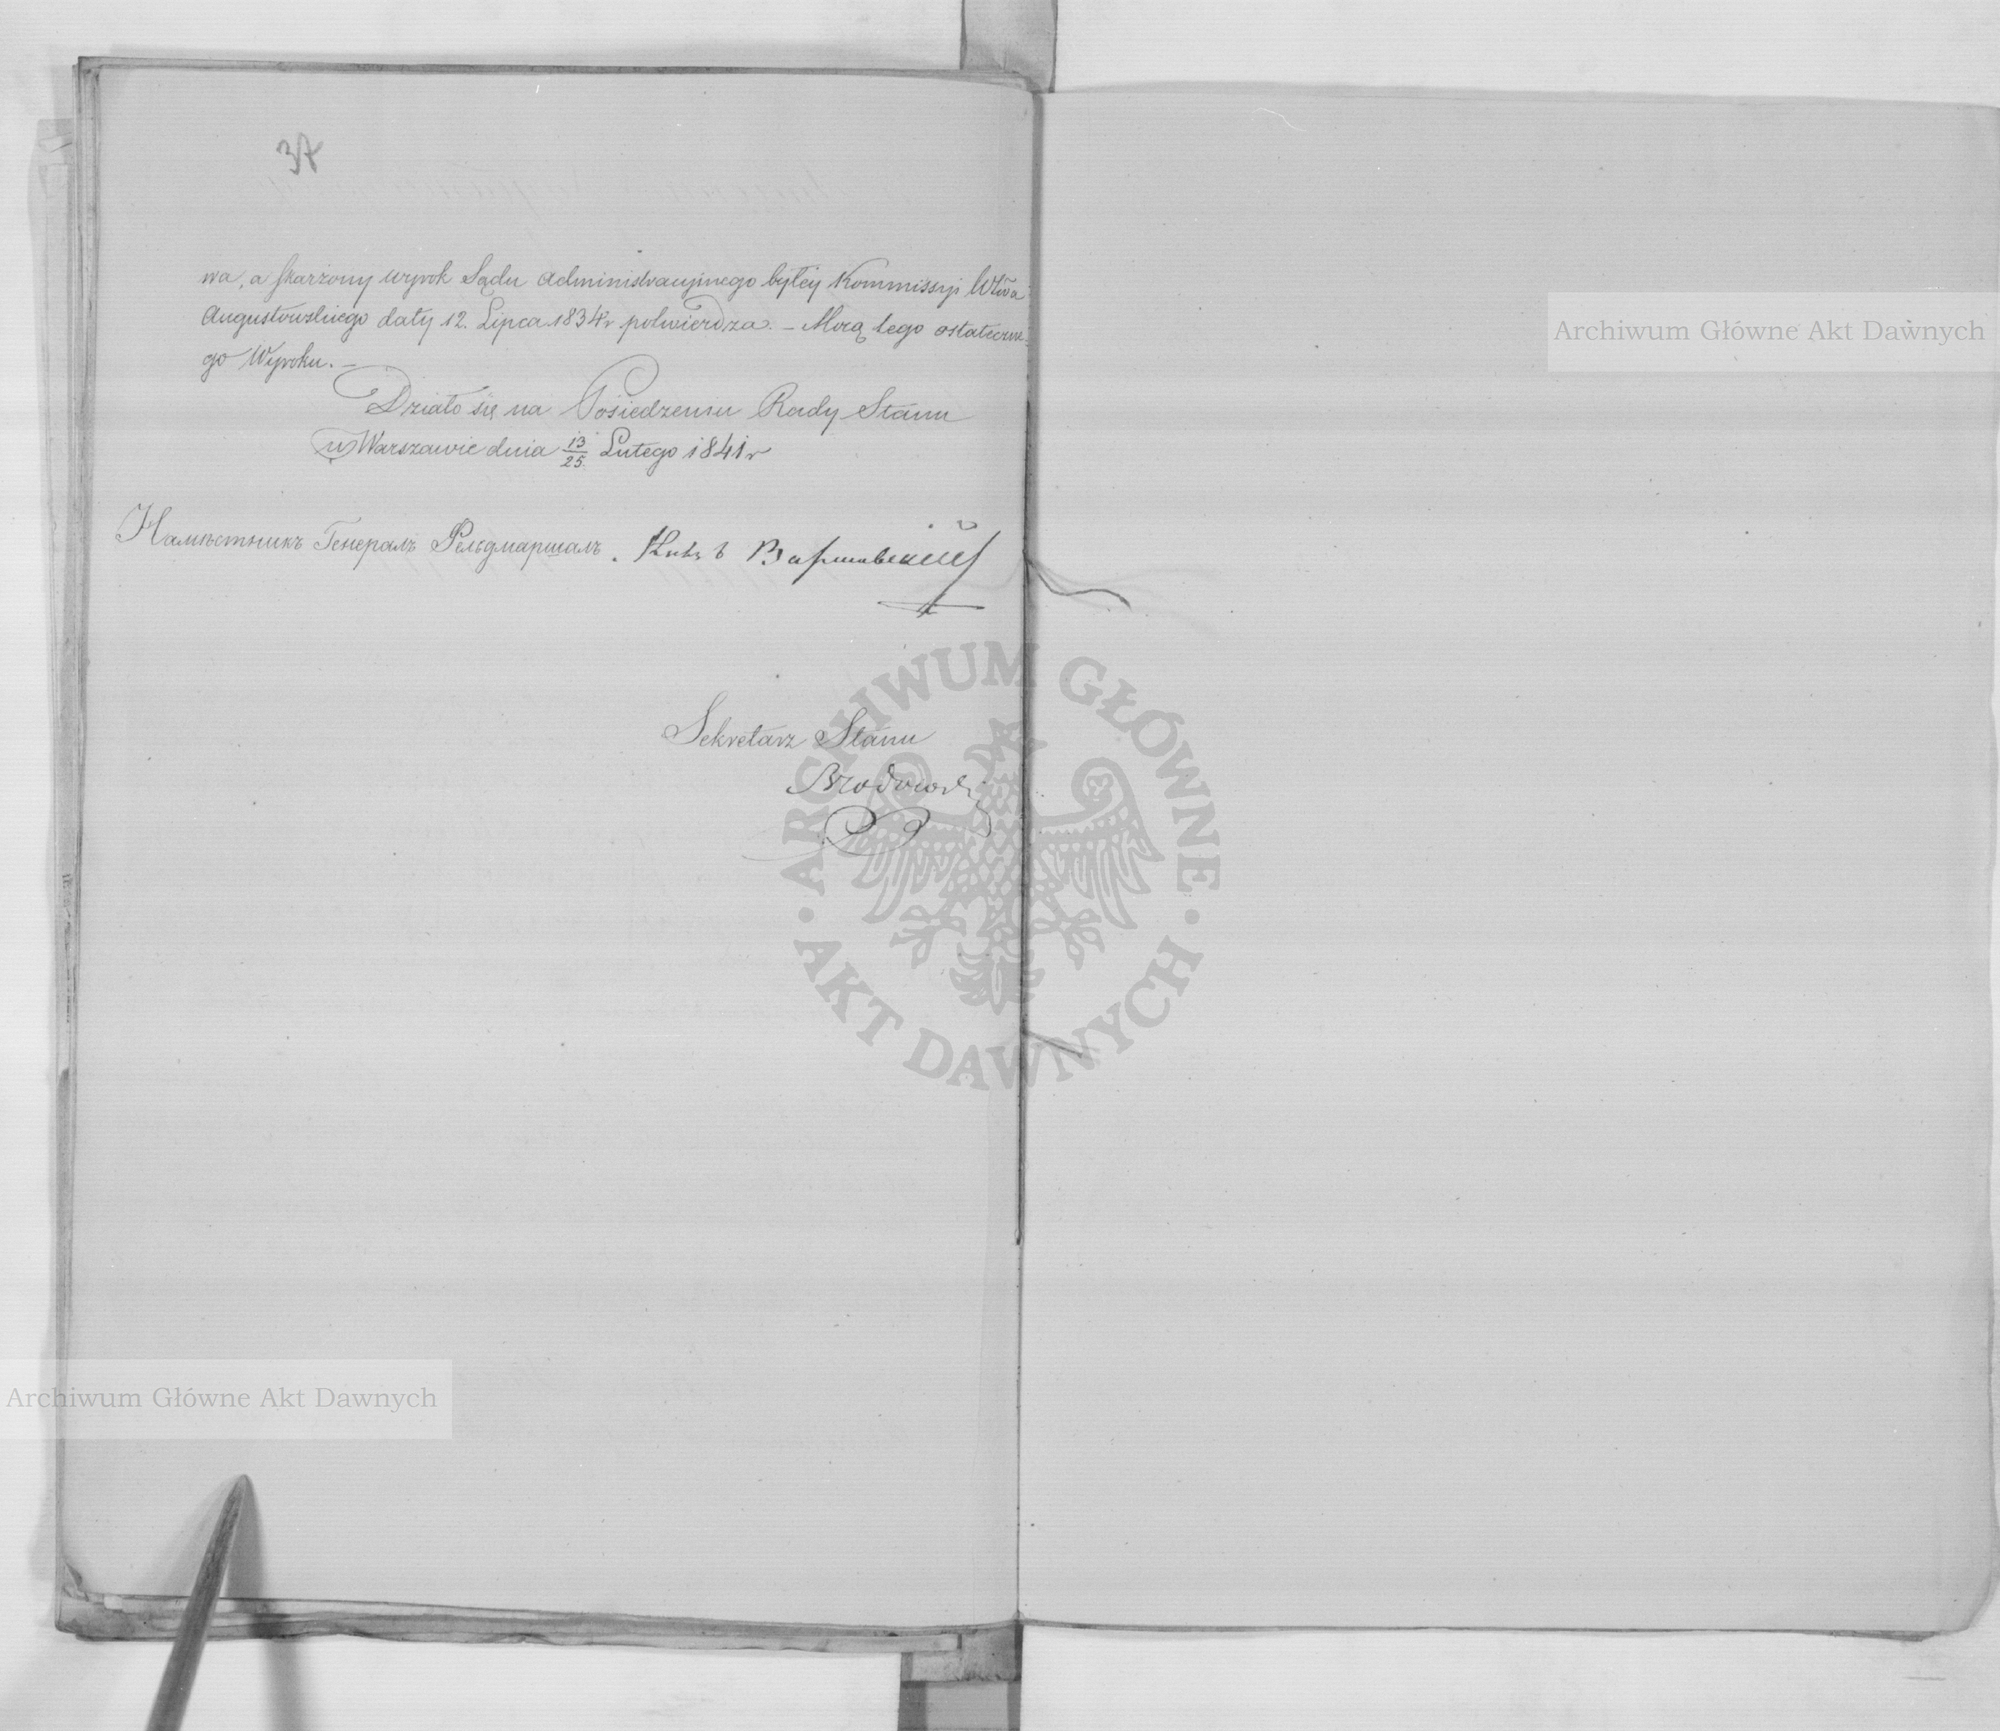 37
wa, a skarżony wyrok Sądu Administracyjnego byłey Kommissyi Wtwa
Augustowskiego daty 12. Lipca 1834 r potwierdza. – Mocą tego ostateczne-
go Wyroku. –
Działo się na Posiedzeniu Rady Stanu
w Warszawie dnia 13/25 Lutego 1841 r
Намѣстникъ Генералъ Фельдмаршалъ. Князь Варшавскій
Sekretarz Stanu
Brodowski
Archiwum Główne Akt Dawnych
ARCHIWUM GŁÓWNE
AKT DAWNYCH
Archiwum Główne Akt Dawnych